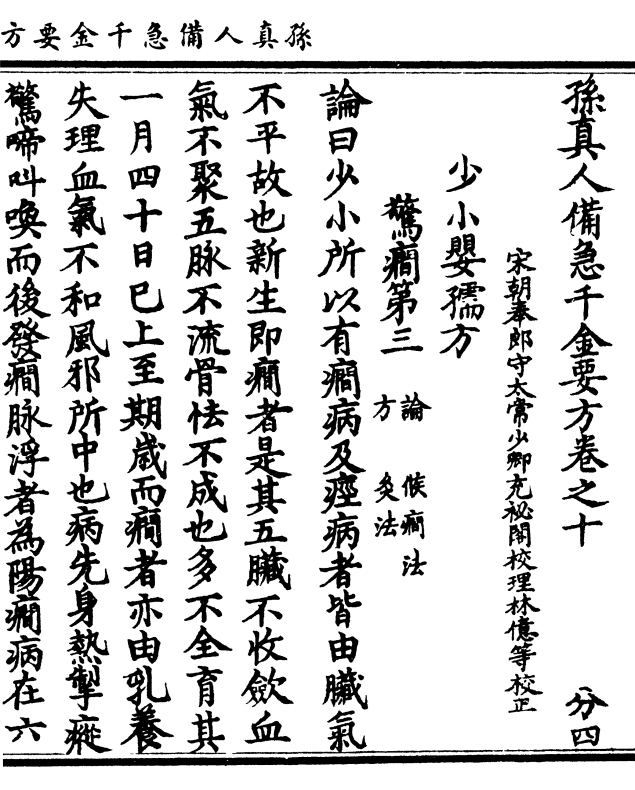 孫真人備急千金要方
孫真人備急千金要方卷之十 分四
宋朝奉郎守太常少卿充祕閣校理林億等校正
少小嬰孺方
驚癇第三 論 候癇法
方 灸法
論曰少小所以有癇病及痙病者皆由臟氣
不平故也新生即癇者是其五臟不收斂血
氣不聚五脉不流骨怯不成也多不全育其
一月四十日已上至期歲而癇者亦由乳養
失理血氣不和風邪所中也病先身熱掣瘲
驚啼叫喚而後發癇脉浮者為陽癇病在六